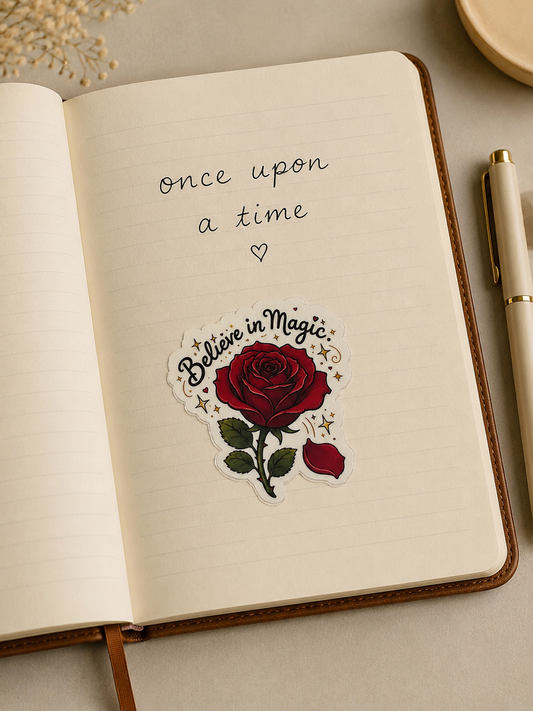 once upon
a time
Believe in Magic.